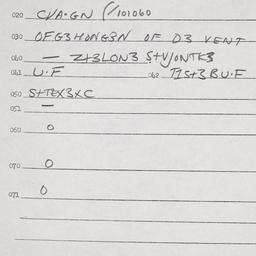 020 CVA·GN (/101060
030 OFG3HONG3N OF D3 VENT
040 — Z+3LON3 S+VJONTK3
041 U·F 042 TIS+3BU·F
050 S+TEX3XC
051 —
060 0
070 0
071 0